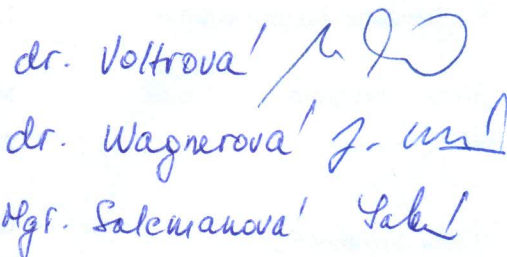 dr. Voltrová
dr. Wagnerová J.
Mgr. Salcmanová